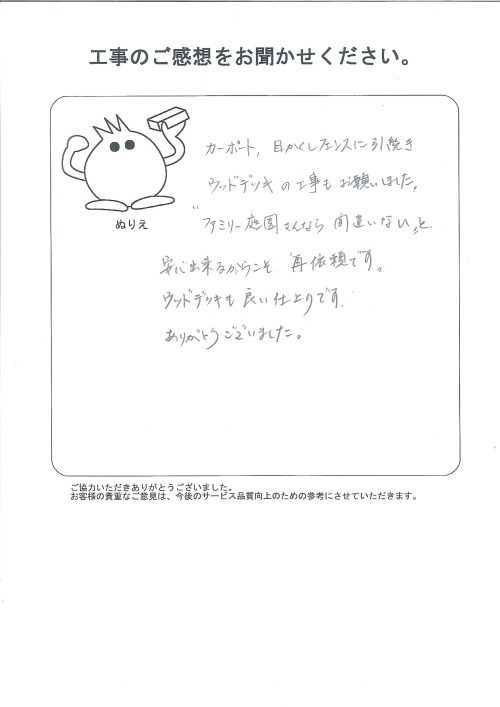 工事のご感想をお聞かせください。
カーポート, 目かくしフェンスに引続き
ウッドデッキの工事もお願いしました,
"ファミリー庭園さんなら間違いない"と
ぬりえ
安心出来るからこそ 再依頼です。
ウッドデッキも良い仕上りです.
ありがとうございました。
ご協力いただきありがとうございました。
お客様の貴重なご意見は、今後のサービス品質向上のための参考にさせていただきます。